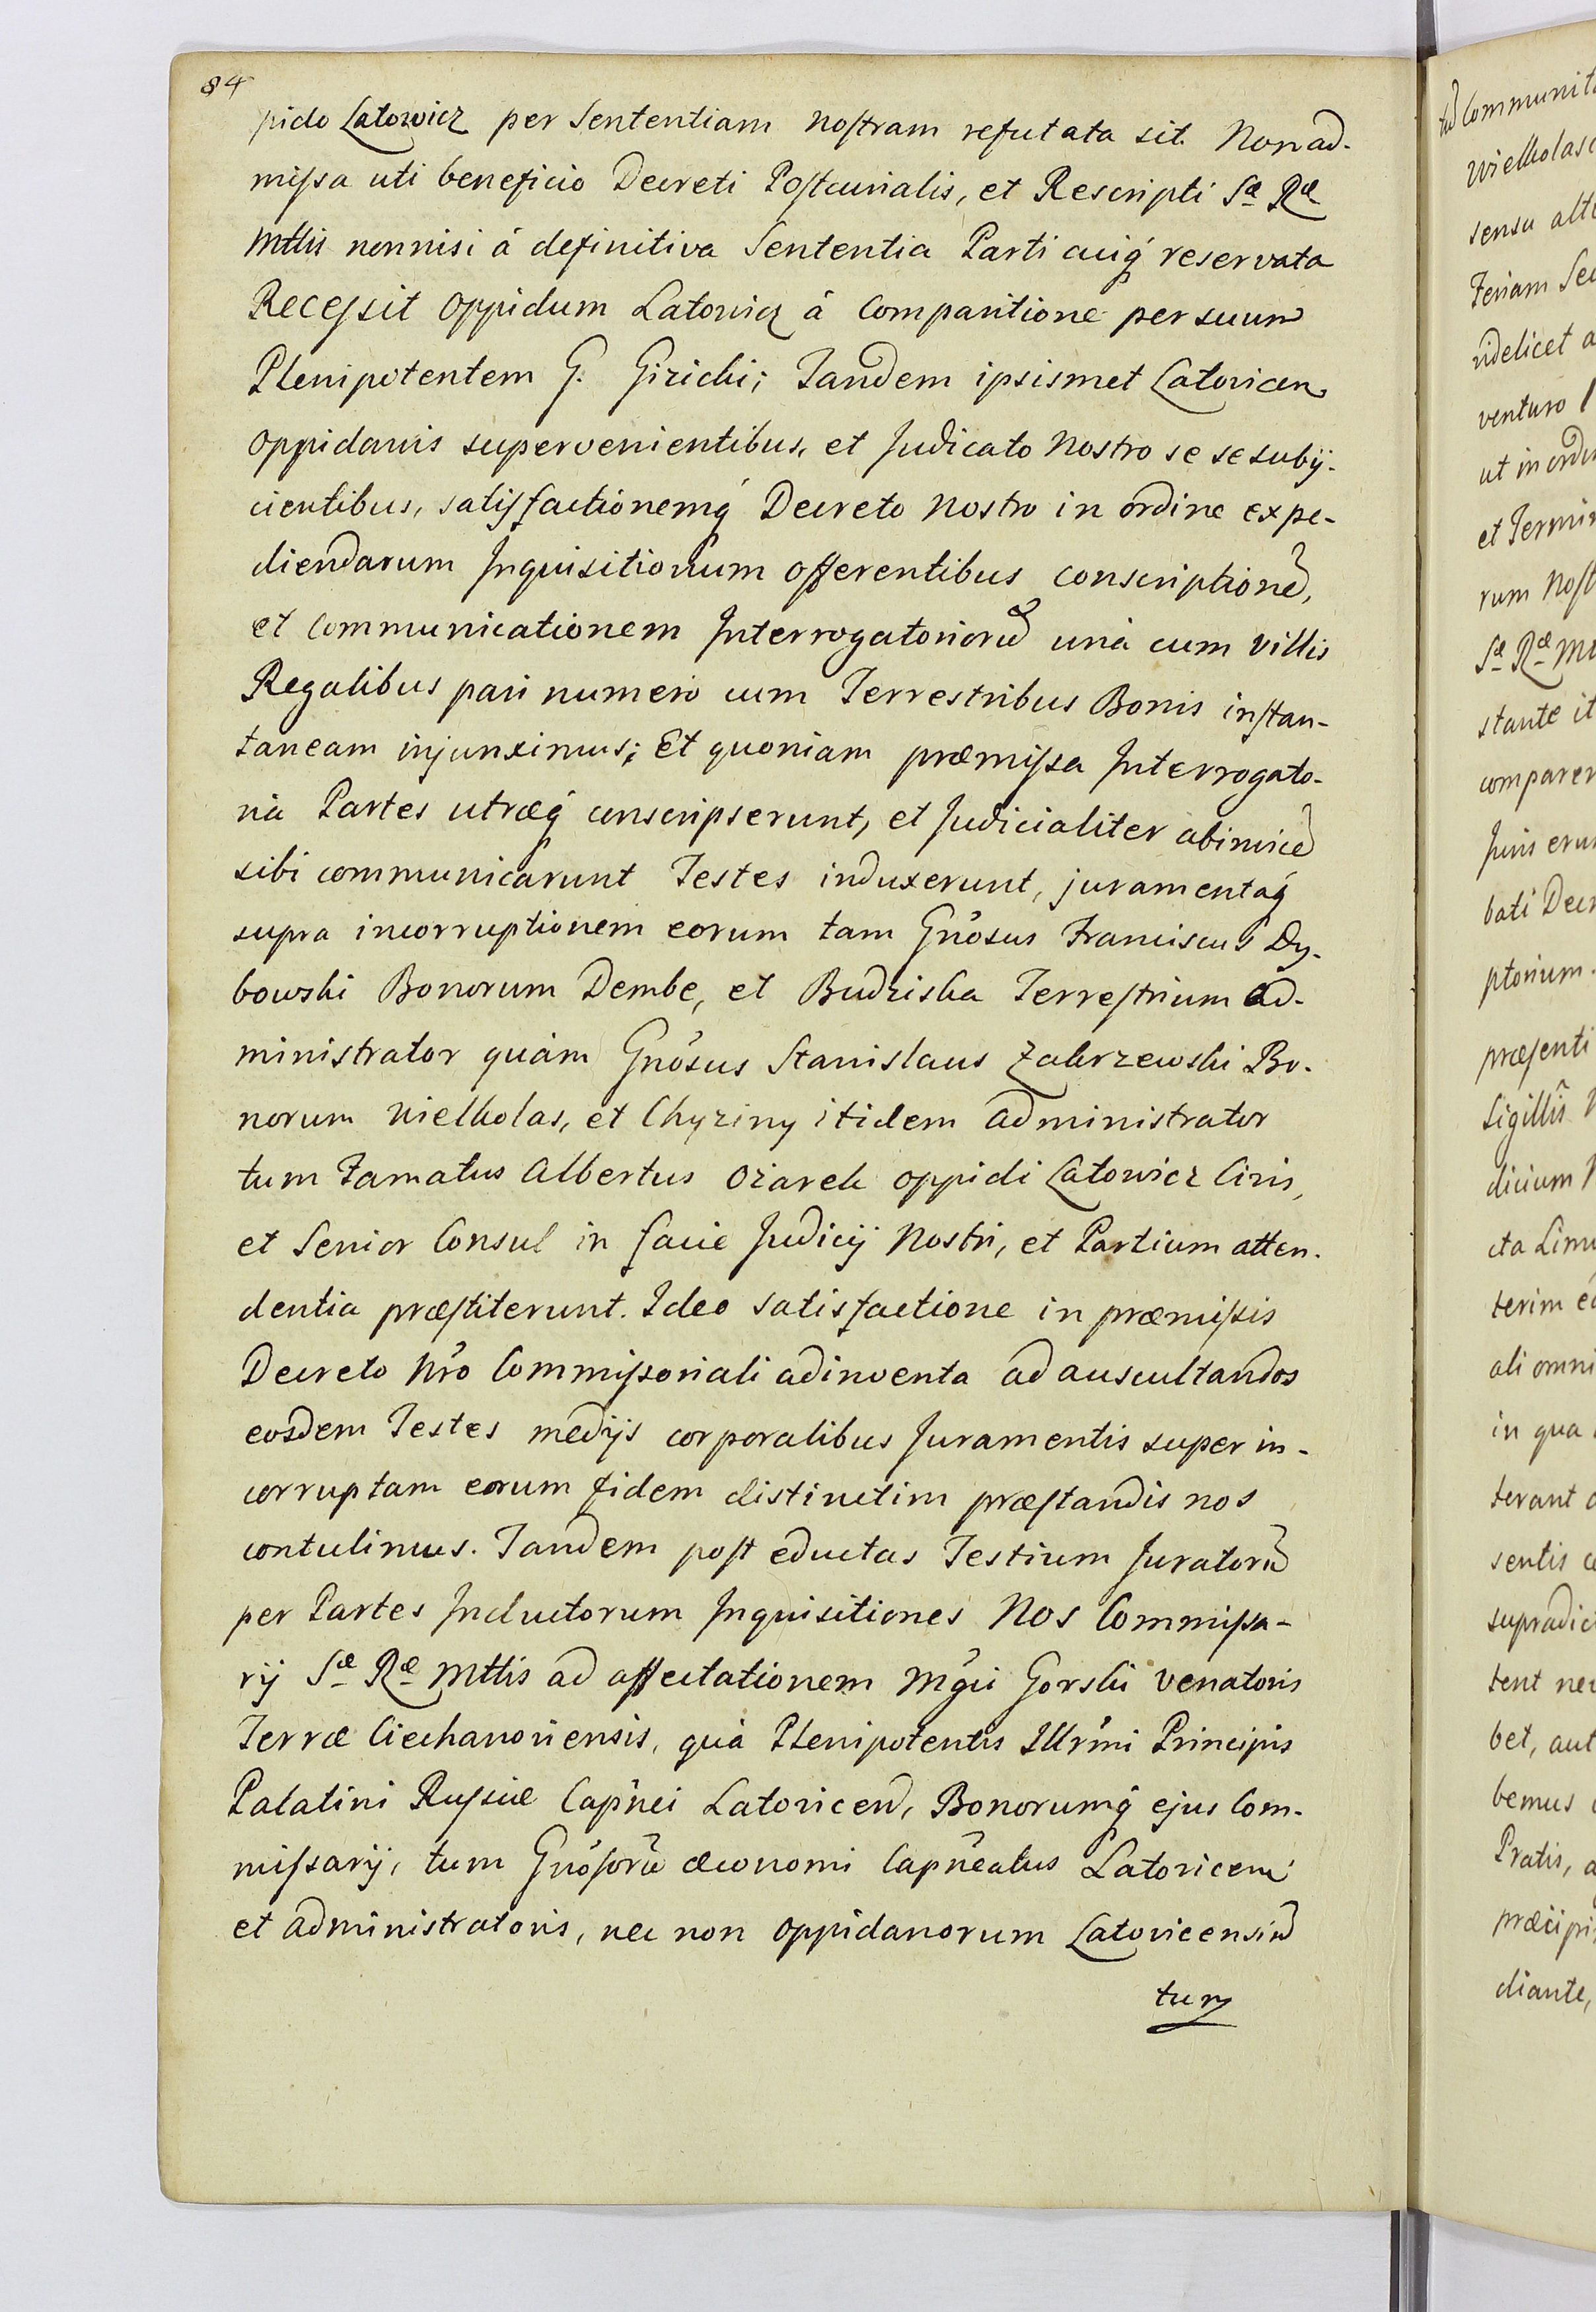 84
pido Latowicz per Sententiam noſtram refutata sit. Non ad-
miſsa uti beneficio Decreti Poſtcurialis, et Rescripti Sæ Ræ
Mttis nonnisi á definitiva Sententia Parti cuiq́ reservata
Receſsit Oppidum Latowicz á Comparitione per suum
Plenipotentem G. Giricki; Tandem ipsismet Latovicen
Oppidanis supervenientibus, et Judicato Nostro se se subij-
cientibus, satisfactionemq́ Decreto Nostro in ordine expe-
diendarum Inquisitionum offerentibus conscriptionẽ,
et Communicationem Interrogatoriorũ unà cum villis
Regalibus pari numero cum Terrestribus Bonis inſtan-
taneam injunximus; Et quoniam præmiſsa Interrogato-
ria Partes utræq́ conscripserunt, et Judicialiter abinvicẽ
sibi communicarunt Testes induxerunt, juramentaq́
supra incorruptionem eorum tam Gnŏsus Franciscus Dy-
bowski Bonorum Dembe, et Budziska Terreſtrium Ad-
ministrator quàm Gnŏsus Stanislaus Zakrzewski Bo-
norum Wielholas, et Chyziny itidem Administrator
tum Famatus Albertus Ożarek oppidi Latowicz Civis,
et Senior Consul in facie Judicij Nostri, et Partium atten-
dentia præſtiterunt. Ideo satisfactione in præmiſsis
Decreto Nr̃o Commiſsoriali adinventa ad auscultandos
eosdem Testes medijs corporalibus Juramentis super in-
corruptam eorum fidem distinctim præſtandis nos
contulimus. Tandem poſt eductas Testium Juratorũ
per Partes Inductorum Inquisitiones Nos Commiſsa-
rij Sæ Ræ Mttis ad affectationem Mg̃ci Gorski Venatoris
Terræ Ciechanoviensis, quà Plenipotentis Illr̃mi Principis
Palatini Ruſsiæ Capñei Latovicen, Bonorumq́ ejus Com-
miſsarij, tum Gnŏſorũ œconomi Capñeatus Latovicen
et Administratoris, nec non Oppidanorum Latovicensiũ
tum